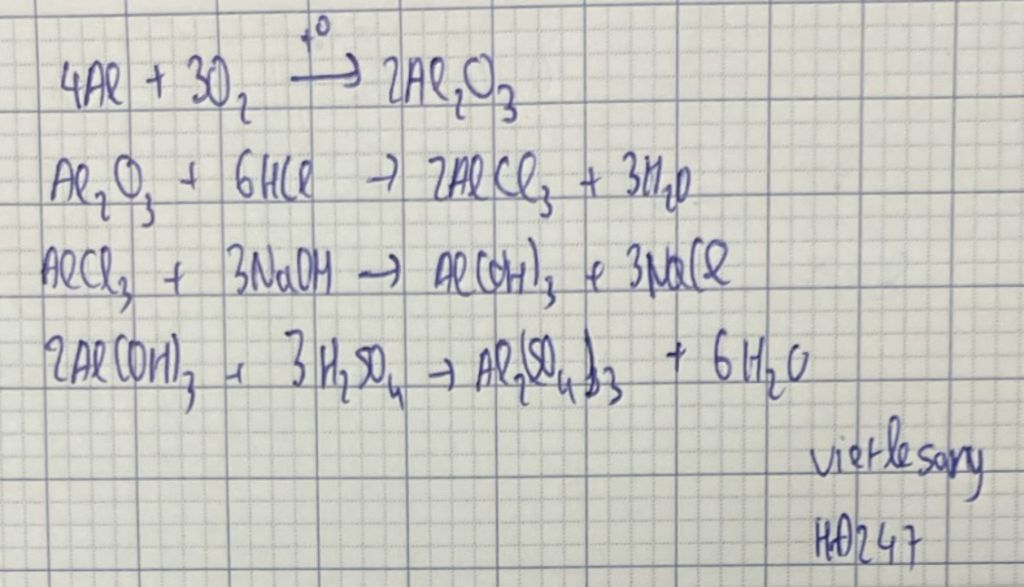 4Al + 3O₂ →(t⁰) 2Al₂O₃
Al₂O₃ + 6HCl → 2AlCl₃ + 3H₂O
AlCl₃ + 3NaOH → Al(OH)₃ + 3NaCl
2Al(OH)₃ + 3H₂SO₄ → Al₂(SO₄)₃ + 6H₂O
vietlesany
HD247